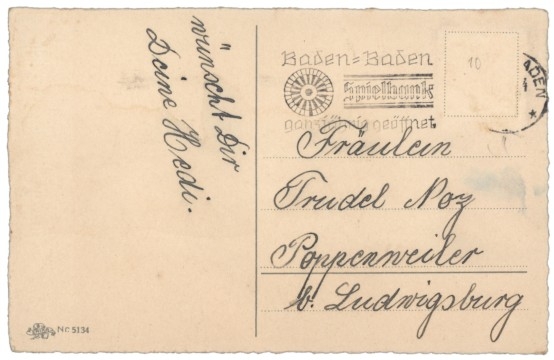 wünscht Dir
Deine Hedi.
Baden=Baden
Spielbank
ganzjährig geöffnet
10
ADEN
Fräulein
Trudel Noz
Poppenweiler
b. Ludwigsburg
Nr. 5134